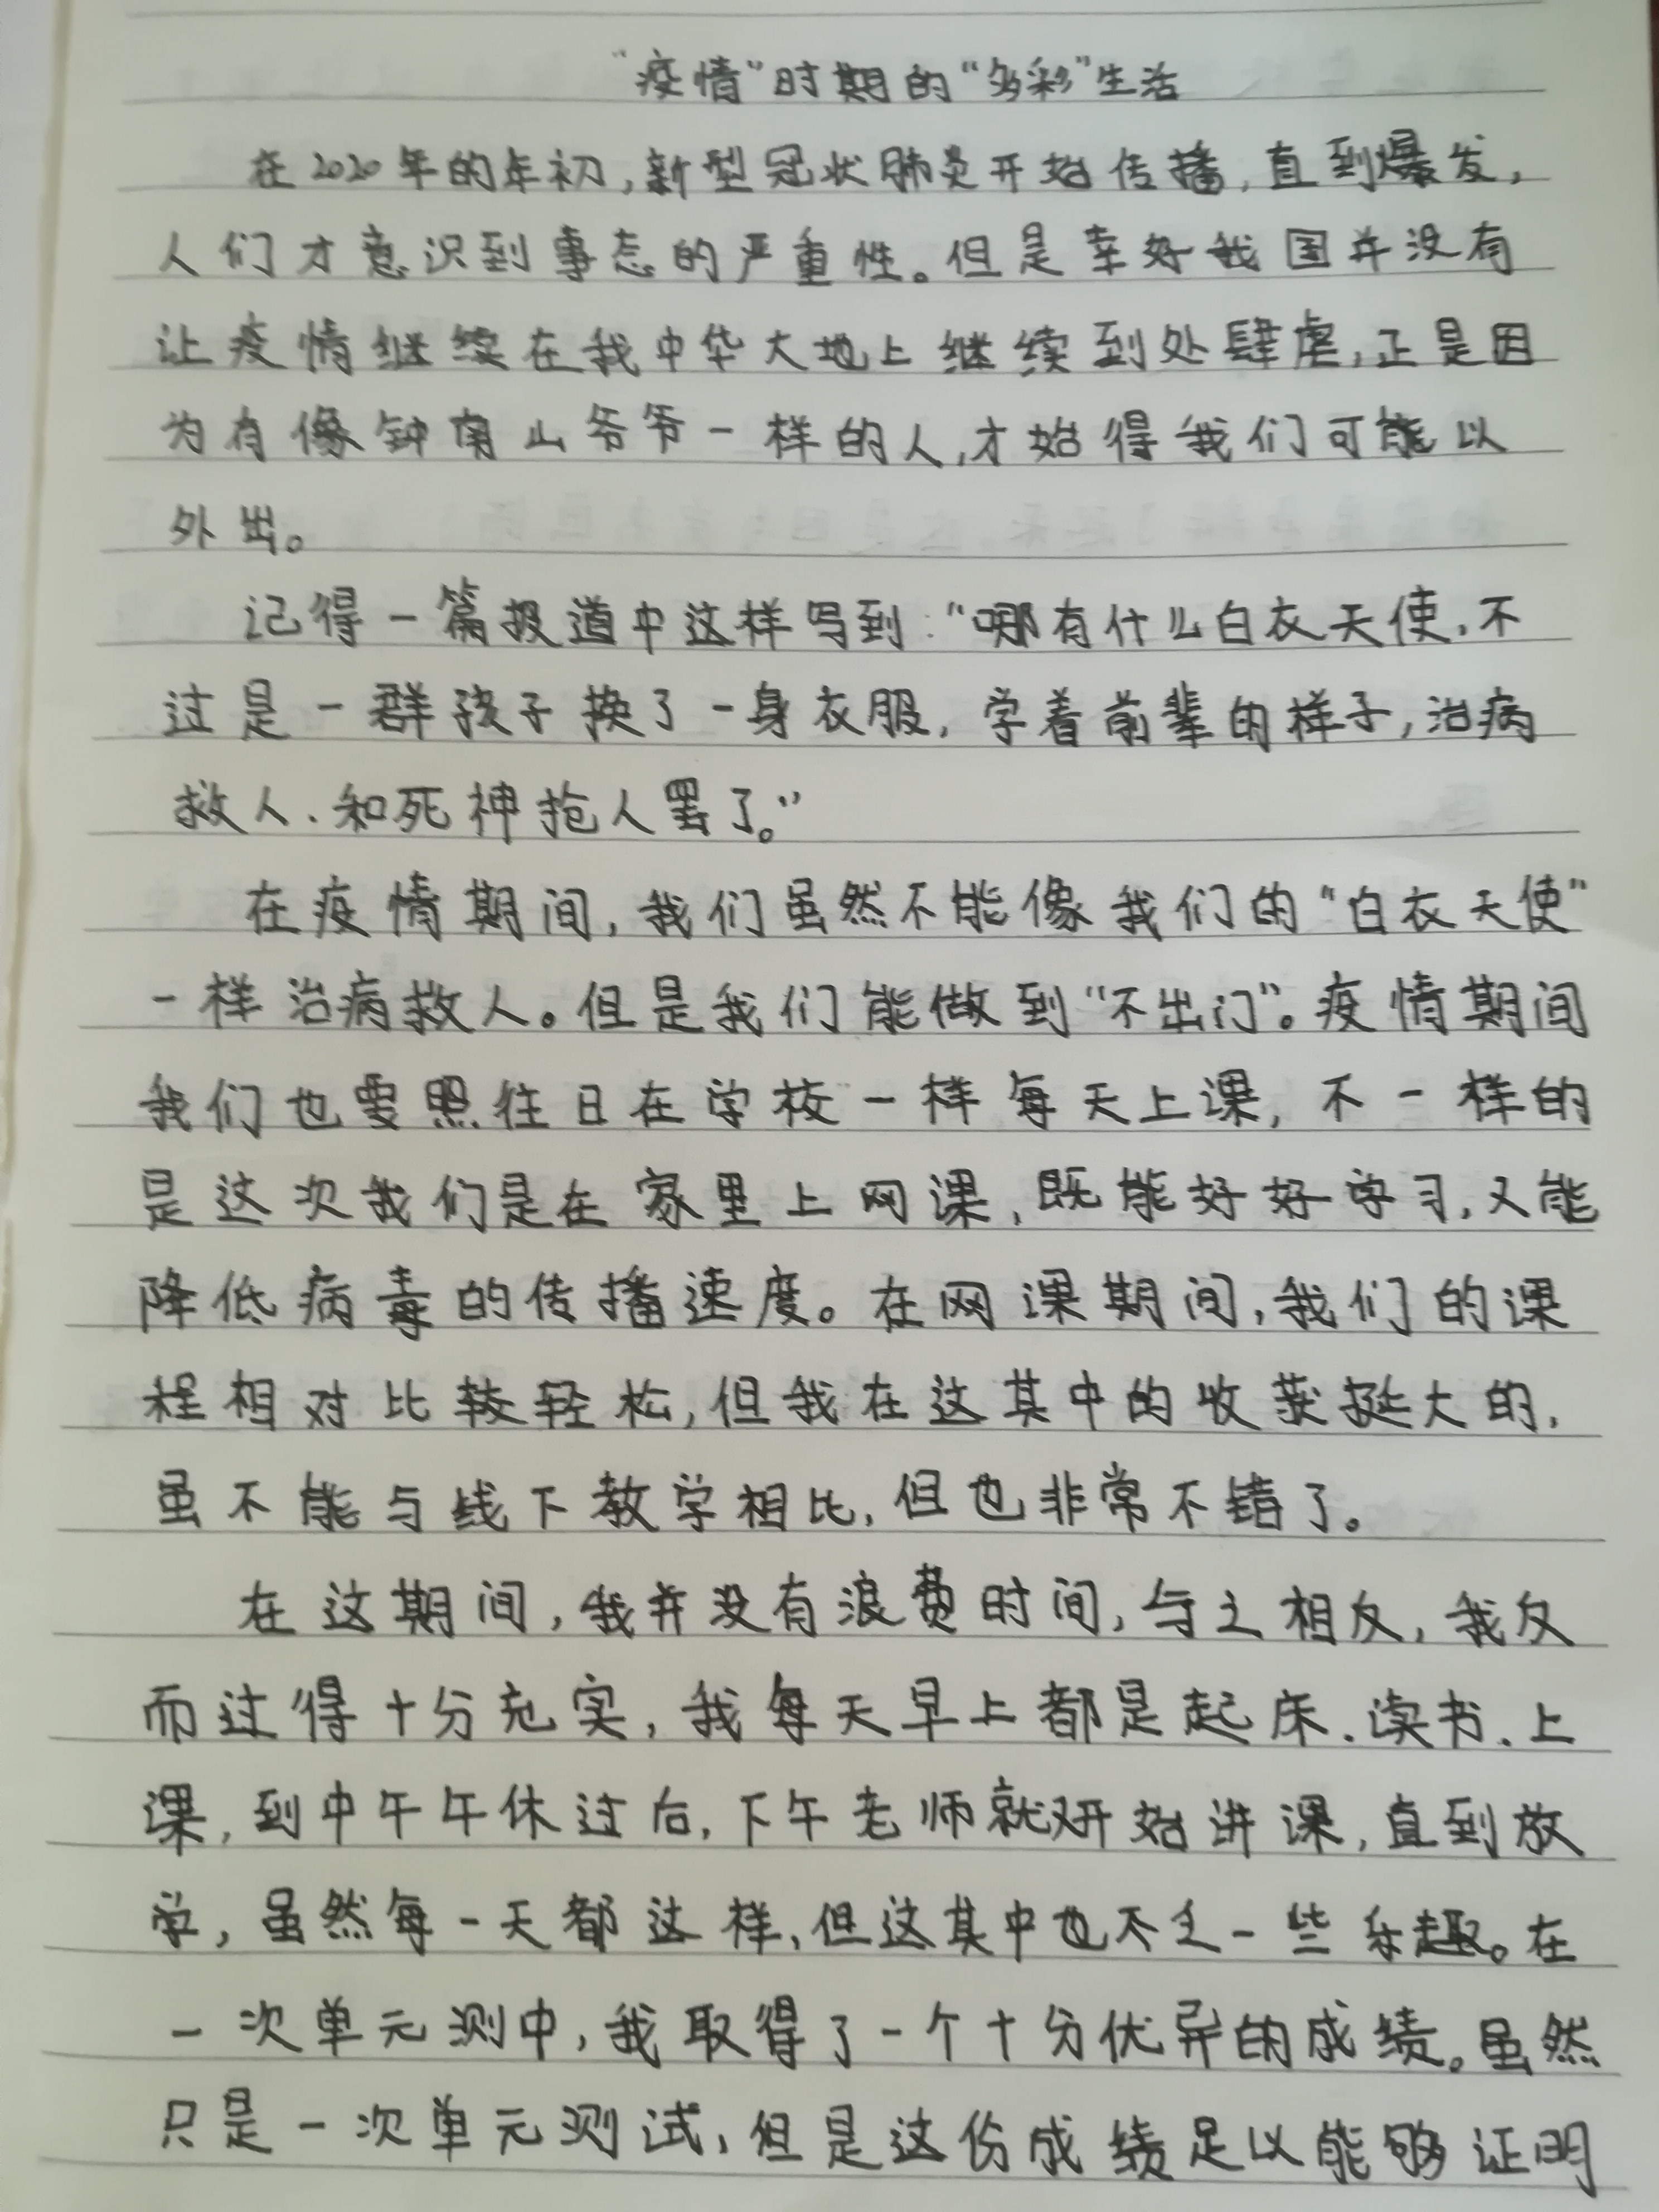 “疫情”时期的“多彩”生活
在2020年的年初,新型冠状肺炎开始传播,直到爆发,
人们才意识到事态的严重性。但是幸好我国并没有
让疫情继续在我中华大地上继续到处肆虐,正是因
为有像钟南山爷爷一样的人,才始得我们可能以
外出。
记得一篇报道中这样写到:“哪有什么白衣天使,不
过是一群孩子换了一身衣服,学着前辈的样子,治病
救人、和死神抢人罢了。”
在疫情期间,我们虽然不能像我们的“白衣天使”
一样治病救人。但是我们能做到“不出门”。疫情期间
我们也要照往日在学校一样每天上课,不一样的
是这次我们是在家里上网课,既能好好学习,又能
降低病毒的传播速度。在网课期间,我们的课
程相对比较轻松,但我在这其中的收获挺大的,
虽不能与线下教学相比,但也非常不错了。
在这期间,我并没有浪费时间,与之相反,我反
而过得十分充实,我每天早上都是起床、读书、上
课,到中午午休过后,下午老师就又开始讲课,直到放
学,虽然每一天都这样,但这其中也不乏一些乐趣。在
一次单元测中,我取得了一个十分优异的成绩。虽然
只是一次单元测试,但是这份成绩足以能够证明